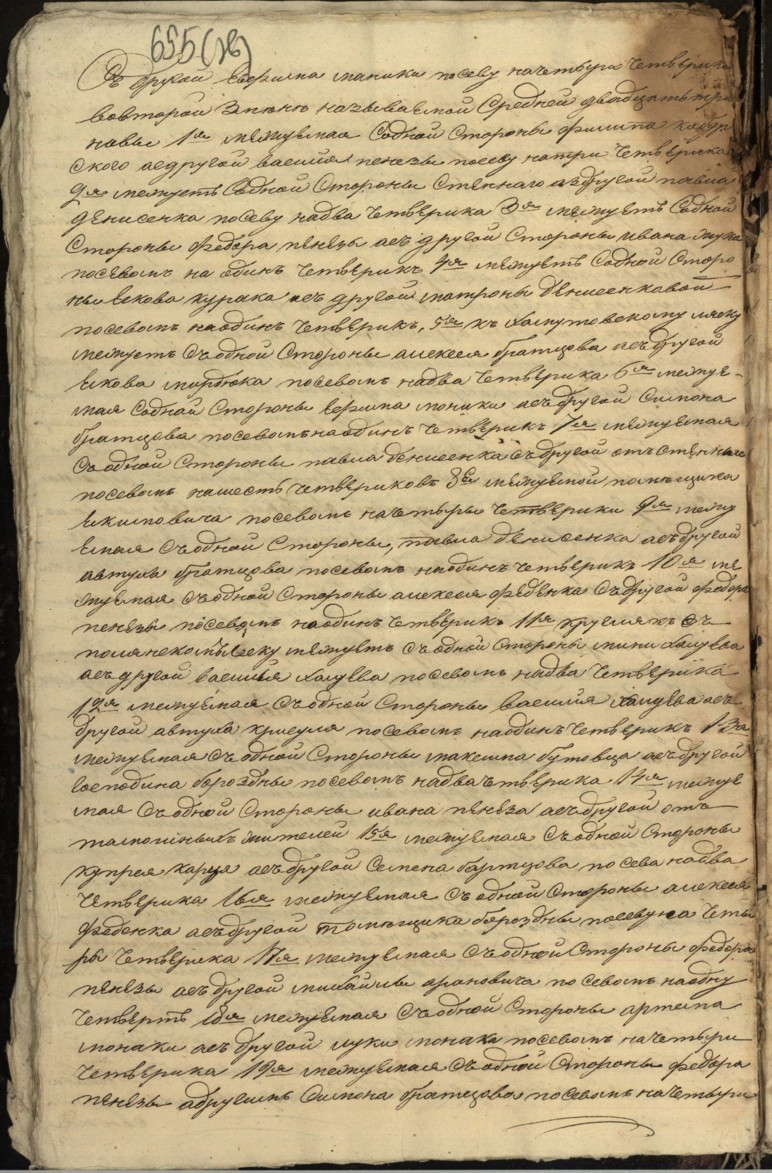 655(об)
Съ другой Ефрима маники посеву начетвури Четверика
вовторой Зменю называемой Средней двадцать три
нивы 1я межуемая Содной Стороны филипа
ского асдругой василия пенезы посеву натри Четверика
2я межуетъ Содной Стороны Стенного асъдругой павла
денисенка посеву надва Четверика 3я межуетъ Содной
Стороны федора пенезы асъ другой Стороны ивана
посевомъ на одинъ Четверикъ 4я межуетъ Содной Сторо
ны Екова курака асъ другой матроны денисенковой
посевомъ наодинъ Четверикъ, 5я къ Хомутовскому
межуетъ Съодной Стороны алексея братцова асъдругой
Екова посевомъ надва Четверика 6я межуе-
мая Содной Стороны Ефрима моники асъдругой Симона
братцова посевомъ наодинъ Четверикъ 7я межуемая
Съодной Стороны павла денисенка Съдругой отъ стенного
посевомъ нашесть Четвериковъ 8я межуемой помещика
Екимовича посевомъ начетыры Четверики 9я межу
емая Съодной Стороны, павла денисенка асъдругой
автуха братцова посевомъ наодинъ Четверикъ 10я ме
жуемая Съодной Стороны алексея феденка Съдругой федора
пенезы посевомъ наодинъ Четверикъ 11я кругляхъ Съ
межуетъ Съодной Стороны мини Халуева
асъ другой василья Халуева посевомъ надва Четверика
12я межуемая Съодной Стороны василия Халуева асъ
другой автуха посевомъ наодинъ Четверикъ 13я
межуемая Съодной Стороны максима бутовца асъдругой
господина бороздны посевомъ надва Четверика 14я межуе
мая Съодной Стороны ивана пенеза асъдругой отъ
тамошныхъ жителей 15я межуемая Съодной Стороны
купрея асъдругой Семена братцова посева надва
Четверика 16я межуемая Съодной Стороны алексея
феденка асъдругой помещика бороздны посеву на Четы
ры Четверика 17я межуемая Съодной Стороны федора
пенезы асъдругой михайлы ароновича посевомъ наодну
Четверть 18я межуемая Съодной Стороны артема
монаки асъдругой луки монаки посевомъ на Четыри
Четверика 19я межуемая Съодной Стороны федора
пенезы адругимъ Симона братцова посевомъ на Четыри